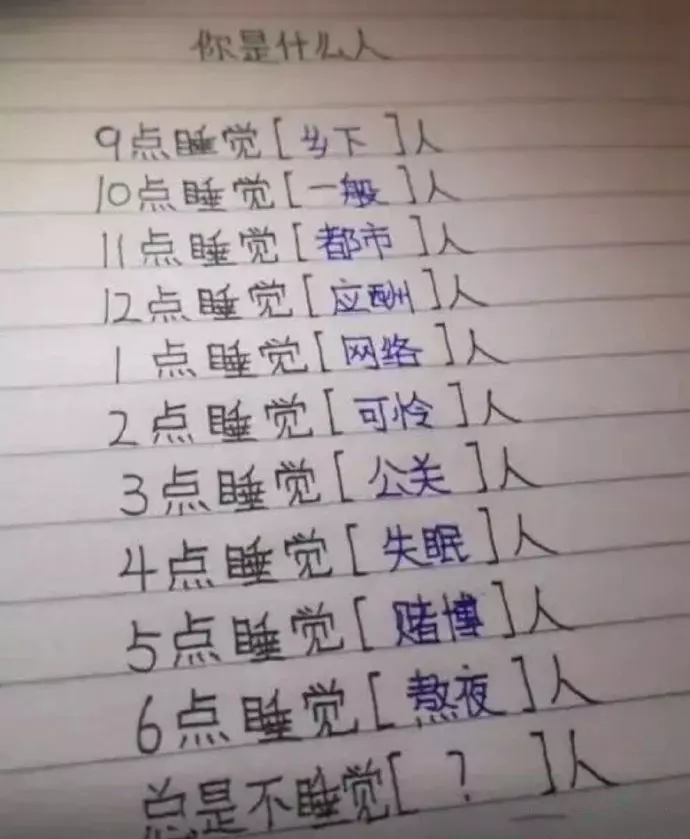 你是什么人
9点睡觉[乡下]人
10点睡觉[一般]人
11点睡觉[都市]人
12点睡觉[应酬]人
1点睡觉[网络]人
2点睡觉[可怜]人
3点睡觉[公关]人
4点睡觉[失眠]人
5点睡觉[赌博]人
6点睡觉[熬夜]人
总是不睡觉[?]人